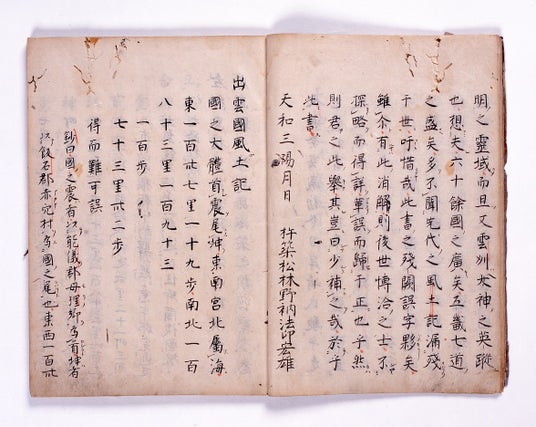 明之靈域而且又雲州大神之英蹤
也想夫六十餘國之廣矣五畿七道
之盛矣多不聞先代之風土記漏殘
于世吁惜哉此書之殘闕誤字夥矣
雖尒有此消解則後世博洽之士不
探略而得詳革誤而歸于正也乎然
則君之此舉其豈曰少補之哉於于
此書
天和三陽月日 杵築松林野衲法印宏雄
出雲國風土記
國之大體首震尾坤東南宮北屬海
東一百卅七里一十九步南北一百
八十三里一百九十三
一百步
七十三里卅二步
得而難可誤
鈔曰國之震者以能儀郡母理鄉為首坤者
以飯石郡赤穴村為國之尾也東西一百卅